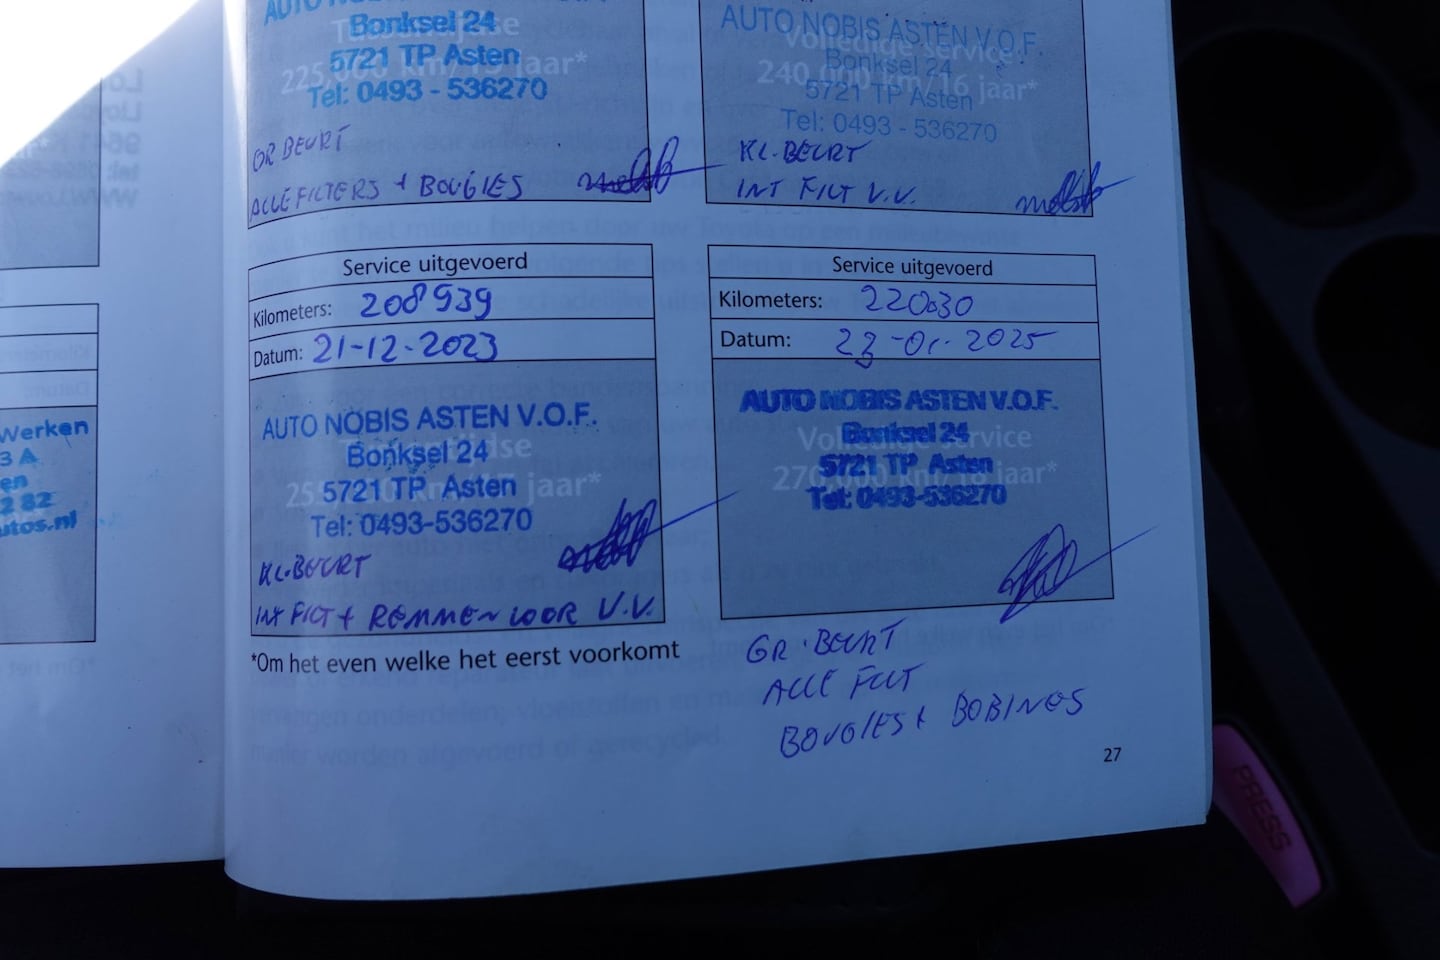 AUTO NOBIS
Bonksel 24
Tussentijdse
5721 TP Asten
225,000 km/15 jaar*
Tel: 0493 - 536270
GR BEURT
ALLE FILTERS + BOUGIES
AUTO NOBIS ASTEN V.O.F.
Volledige service
Bonksel 24
240,000 km/16 jaar*
5721 TP Asten
Tel: 0493 - 536270
KL. BEURT
INT FILT V.V.
Service uitgevoerd
Kilometers: 208939
Datum: 21-12-2023
AUTO NOBIS ASTEN V.O.F.
Tussentijdse
Bonksel 24
5721 TP Asten
jaar*
Tel: 0493-536270
KL. BEURT
INT FILT + REMMEN VOOR V.V.
*Om het even welke het eerst voorkomt
Service uitgevoerd
Kilometers: 220030
Datum: 23-01-2025
AUTO NOBIS ASTEN V.O.F.
Volledige service
Bonksel 24
270,000 km/18 jaar*
5721 TP Asten
Tel: 0493-536270
GR. BEURT
ALLE FILT
BOUGIES + BOBINES
27
Werken
3 A
en
2 82
utos.nl
PRESS